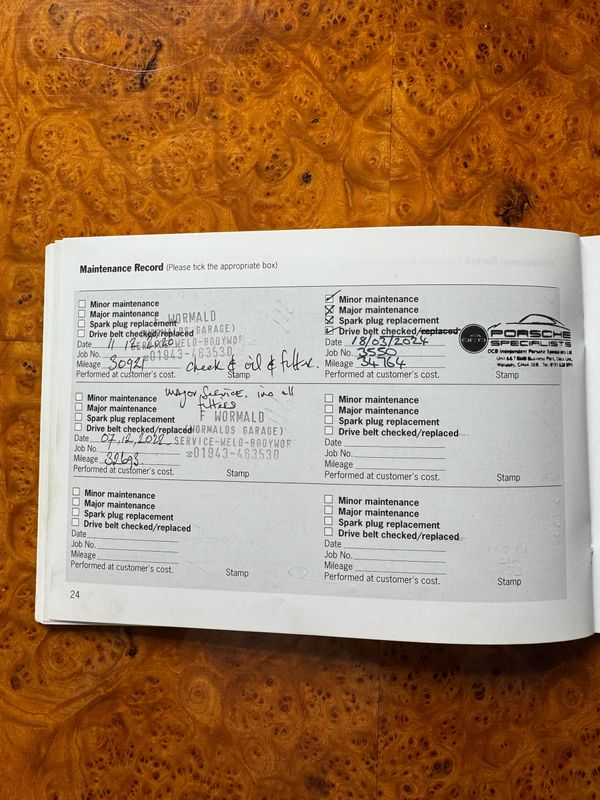 Maintenance Record (Please tick the appropriate box)
Minor maintenance
Major maintenance
Spark plug replacement
Drive belt checked/replaced
F WORMALD
(WORMALDS GARAGE)
SERVICE-WELD-BODYWOR
☎01943-463530
Date 11.12.2020
Job No.
Mileage 30921 check & oil & filter.
Performed at customer's cost.
Minor maintenance
Major maintenance
Spark plug replacement
Drive belt checked/replaced
Date 18/03/2024
Job No. 3550
Mileage 34764
Performed at customer's cost.
PORSCHE
SPECIALISTS
OCD Independent Porsche Specialists Ltd
Minor maintenance
Major maintenance
Spark plug replacement
Drive belt checked/replaced
Major Service. inc all
filters
F WORMALD
(WORMALDS GARAGE)
SERVICE-WELD-BODYWOR
☎01943-463530
Date 07.12.2022
Job No.
Mileage 32693
Performed at customer's cost.
Stamp
Minor maintenance
Major maintenance
Spark plug replacement
Drive belt checked/replaced
Date
Job No.
Mileage
Performed at customer's cost.
Stamp
Minor maintenance
Major maintenance
Spark plug replacement
Drive belt checked/replaced
Date
Job No.
Mileage
Performed at customer's cost.
Stamp
Minor maintenance
Major maintenance
Spark plug replacement
Drive belt checked/replaced
Date
Job No.
Mileage
Performed at customer's cost.
Stamp
24